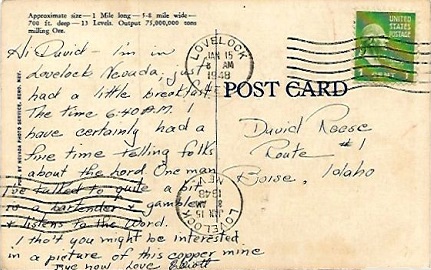 Approximate size — 1 Mile long — 5-8 mile wide —
700 ft. deep — 13 Levels. Output 75,000,000 tons
milling Ore.
Hi David — I'm in
Lovelock Nevada, just
had a little breakfast.
The time 6:40 A.M.
have certainly had a
fine time telling folks
about the Lord. One man
I've talked to quite a bit
is a bartender & gambler
& listens to the Word.
I tho't you might be interested
in a picture of this copper mine
Bye now Love Elliott
LOVELOCK
JAN 15
8 AM
1948
NEV.
UNITED
STATES
POSTAGE
1 CENT
POST CARD
David Reese
Route #1
Boise, Idaho
LOVELOCK
JAN 15
8 AM
1948
NEV.